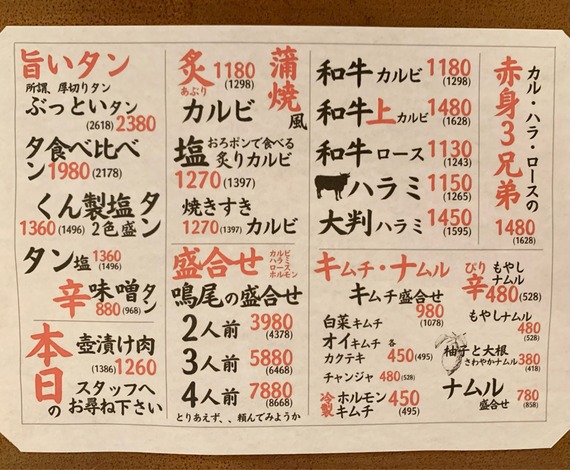 旨いタン
所謂、厚切りタン
ぶっといタン
(2618) 2380
タン食べ比べ
1980 (2178)
くん製塩タン
1360 (1496) 2色盛
タン塩 1360
(1496)
辛味噌タン
880 (968)
本日の
壺漬け肉
(1386) 1260
スタッフへ
お尋ね下さい
炙 1180
あぶり (1298)
カルビ
蒲焼風
塩 おろポンで食べる
炙りカルビ
1270 (1397)
焼きすき
1270 (1397) カルビ
盛合せ
カルビ
ハラミ
ロース
ホルモン
鳴尾の盛合せ
2人前 3980
(4378)
3人前 5880
(6468)
4人前 7880
(8668)
とりあえず、、頼んでみようか
和牛カルビ 1180
(1298)
和牛上カルビ 1480
(1628)
和牛ロース 1130
(1243)
ハラミ 1150
(1265)
大判ハラミ 1450
(1595)
カル・ハラ・ロースの
赤身3兄弟
1480
(1628)
キムチ・ナムル
キムチ盛合せ
980
(1078)
白菜キムチ
オイキムチ 各
カクテキ 450 (495)
チャンジャ 480 (528)
冷製 ホルモン 450
キムチ (495)
ぴり辛 もやし
ナムル
480 (528)
もやしナムル
480
(528)
柚子と大根
さわやかナムル 380
(418)
ナムル 780
盛合せ (858)